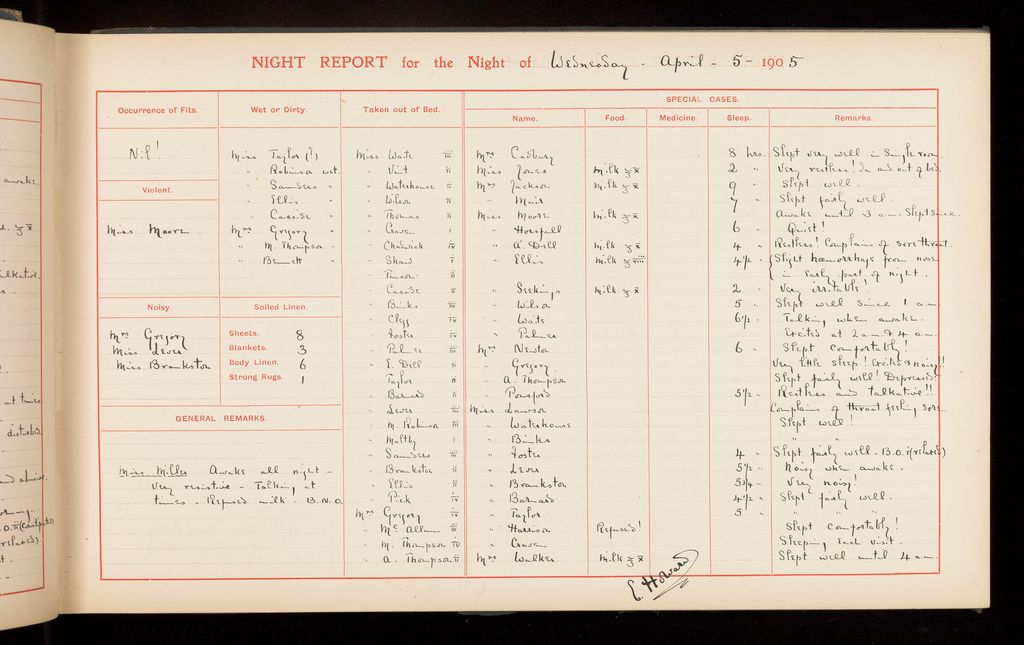 NIGHT REPORT for the Night of Wednesday - April - 5 - 1905
Occurrence of Fits.
Nil!
Violent.
Miss Moore.
Noisy.
Mrs Gregory
Miss Lever
Miss Brankston
Wet or Dirty.
Miss Taylor (?)
" Robinson wet.
" Saunders "
" Ellis "
" Casside "
Mrs Gregory "
" M. Thompson "
" Bennett "
Soiled Linen.
Sheets. 8
Blankets. 3
Body Linen. 6
Strong Rugs. 1
GENERAL REMARKS.
Miss Miller Awake all night -
Very resistive - Talking at
times - Refused milk. B.N.O.
Taken out of Bed.
Miss Waite iii
" Vint ii
" Waterhouse ii
" Wilson ii
" Thomas ii
" Craven i
" Chadwick iv
" Shaw i
" Pearson ii
" Casside ii
" Binks iii
" Clegg iii
" Foster iv
" Palmer iii
" E. Dell ii
" Taylor ii
" Barnard ii
" Lever iii
" M. Robinson iii
" Maltby i
" Saunders iii
" Brankston ii
" Ellis iii
" Pick iv
Mrs Gregory iv
" Mc Allum iii
" M. Thompson iv
" A. Thompson ii
SPECIAL CASES.
Name. Food. Medicine. Sleep. Remarks.
Mrs Cadbury 8 hrs. Slept very well in Single room.
Miss Jones milk ℥x 2 " Very restless! In and out of bed.
Mrs Jackson milk ℥x 9 " Slept well.
" Muir 7 " Slept fairly well.
Miss Moore milk ℥x Awake until 3 a.m. Slept since.
" Horsfall 6 " Quiet!
" A. Dell milk ℥x 4 " Restless! Complains of sore throat.
" Ellis milk ℥viii 4½ " Slight hæmorrhage from nose
in early part of night.
" Seekings milk ℥x 2 " Very irritable!
" Wilson 5 " Slept well since 1 a.m.
" Waite 6½ " Talking when awake.
" Palmer Excited at 2 a.m & 4 a.m.
Mrs Newton 6 " Slept comfortably!
" Gregory Very little sleep! Excited & noisy!!
" A. Thompson Slept fairly well! Depressed!
" Ponsford 5½ " Restless and talkative!!
Miss Lawson Complains of throat feeling sore.
" Waterhouse Slept well!
" Binks " "
" Foster 4 " Slept fairly well. B.O. i (relaxed)
" Lever 5½ " Noisy when awake.
" Brankston 5¾ " Very noisy!
" Barnard 4½ " Slept fairly well.
" Taylor 5 " " " "
" Harrison Refused! Slept comfortably!
" Craven Sleeping each visit.
Mrs Walker milk ℥x Slept well until 4 a.m.
E. Howard